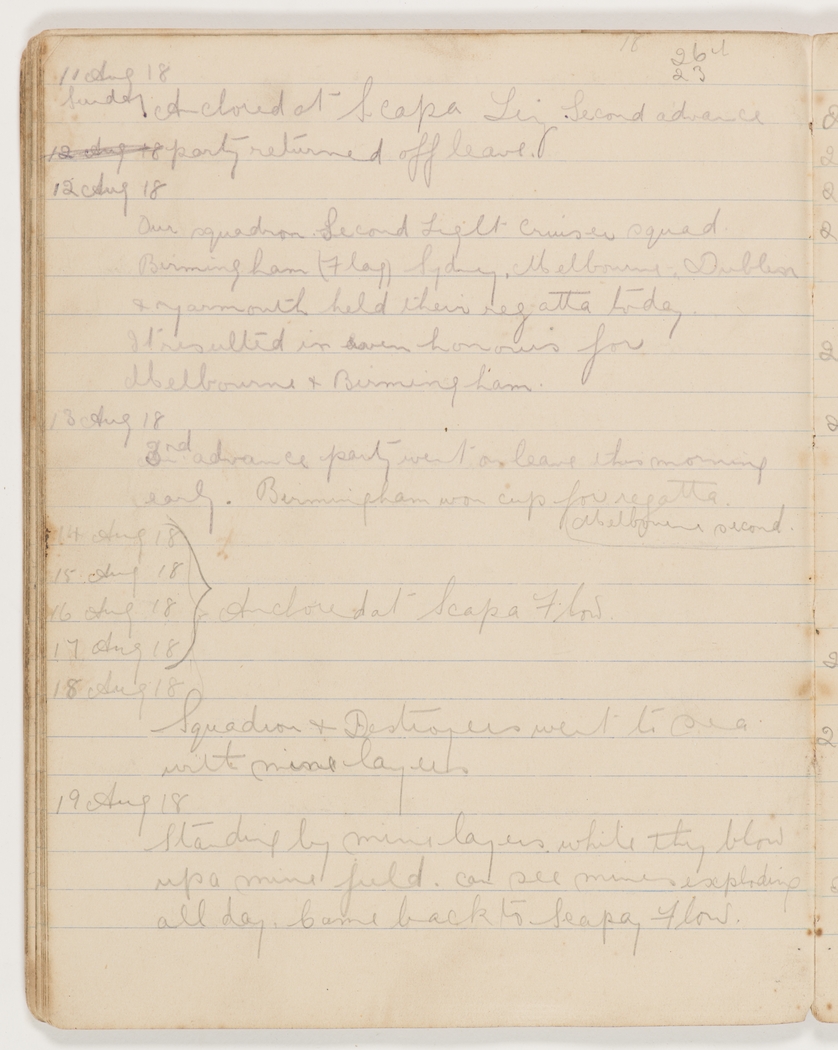 18
26
23
11 Aug 18
Sunday Anchored at Scapa Second advance
12 Aug 18 party returned off leave.
12 Aug 18
Our squadron Second Light Cruiser squad.
Birmingham (Flag) Sydney, Melbourne, Dublin
& Yarmouth held their regatta today.
It resulted in even honours for
Melbourne & Birmingham.
13 Aug 18
3rd advance party went on leave this morning
early. Birmingham won cup for regatta.
(Melbourne second.
14 Aug 18
15 Aug 18
16 Aug 18 Anchored at Scapa Flow.
17 Aug 18
18 Aug 18
Squadron & Destroyers went to sea.
with mine layers
19 Aug 18
Standing by mine layers while they blow
up a mine field. can see mines exploding
all day. Came back to Scapa Flow.